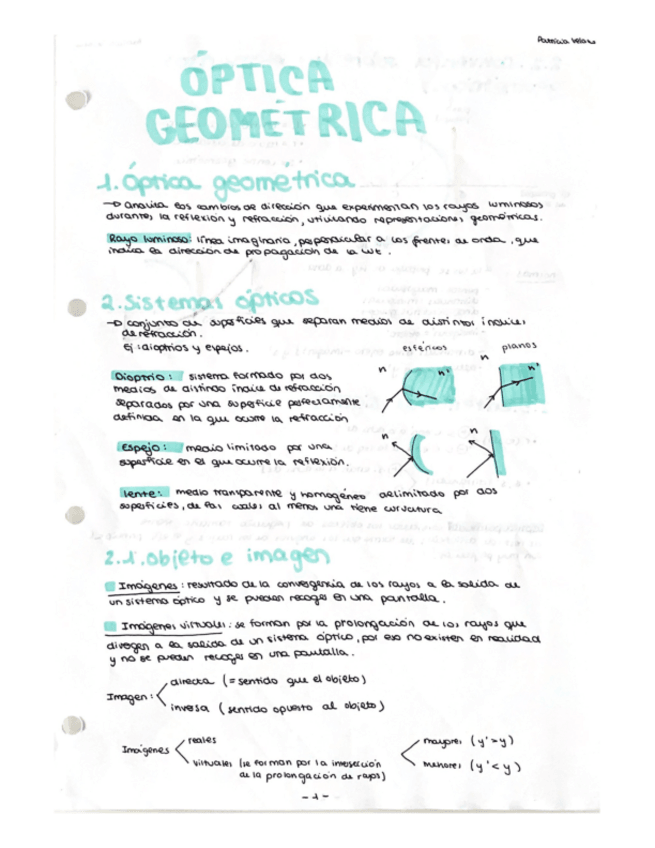 Patricia
ÓPTICA
GEOMÉTRICA
1. Óptica geométrica
→ Analiza los cambios de dirección que experimentan los rayos luminosos
durante la reflexión y refracción, utilizando representaciones geométricas.
Rayo luminoso: línea imaginaria, perpendicular a los frentes de onda, que
indica la dirección de propagación de la luz.
2. Sistemas ópticos
→ conjunto de superficies que separan medios de distintos índices
de refracción.
Ej: dioptrios y espejos.
esféricos
planos
Dioptrio: sistema formado por dos
medios de distindo índice de refracción
separados por una superficie perfectamente
definida en la que ocurre la refracción
n
n'
n
n'
Espejo: medio limitado por una
superficie en el que ocurre la reflexión.
n
n
lente: medio transparente y homogéneo delimitado por dos
superficies, de las cuales al menos una tiene curvatura
2.1. objeto e imagen
Imágenes: resultado de la convergencia de los rayos a la salida de
un sistema óptico y se pueden recoger en una pantalla.
Imágenes virtuales: se forman por la prolongación de los rayos que
divergen a la salida de un sistema óptico, por eso no existen en realidad
y no se pueden recoger en una pantalla.
directa (= sentido que el objeto)
Imagen:
inversa (sentido opuesto al objeto)
reales
mayores (y'>y)
Imágenes
virtuales (se forman por la intersección
de la prolongación de rayos)
menores (y'<y)
-1-